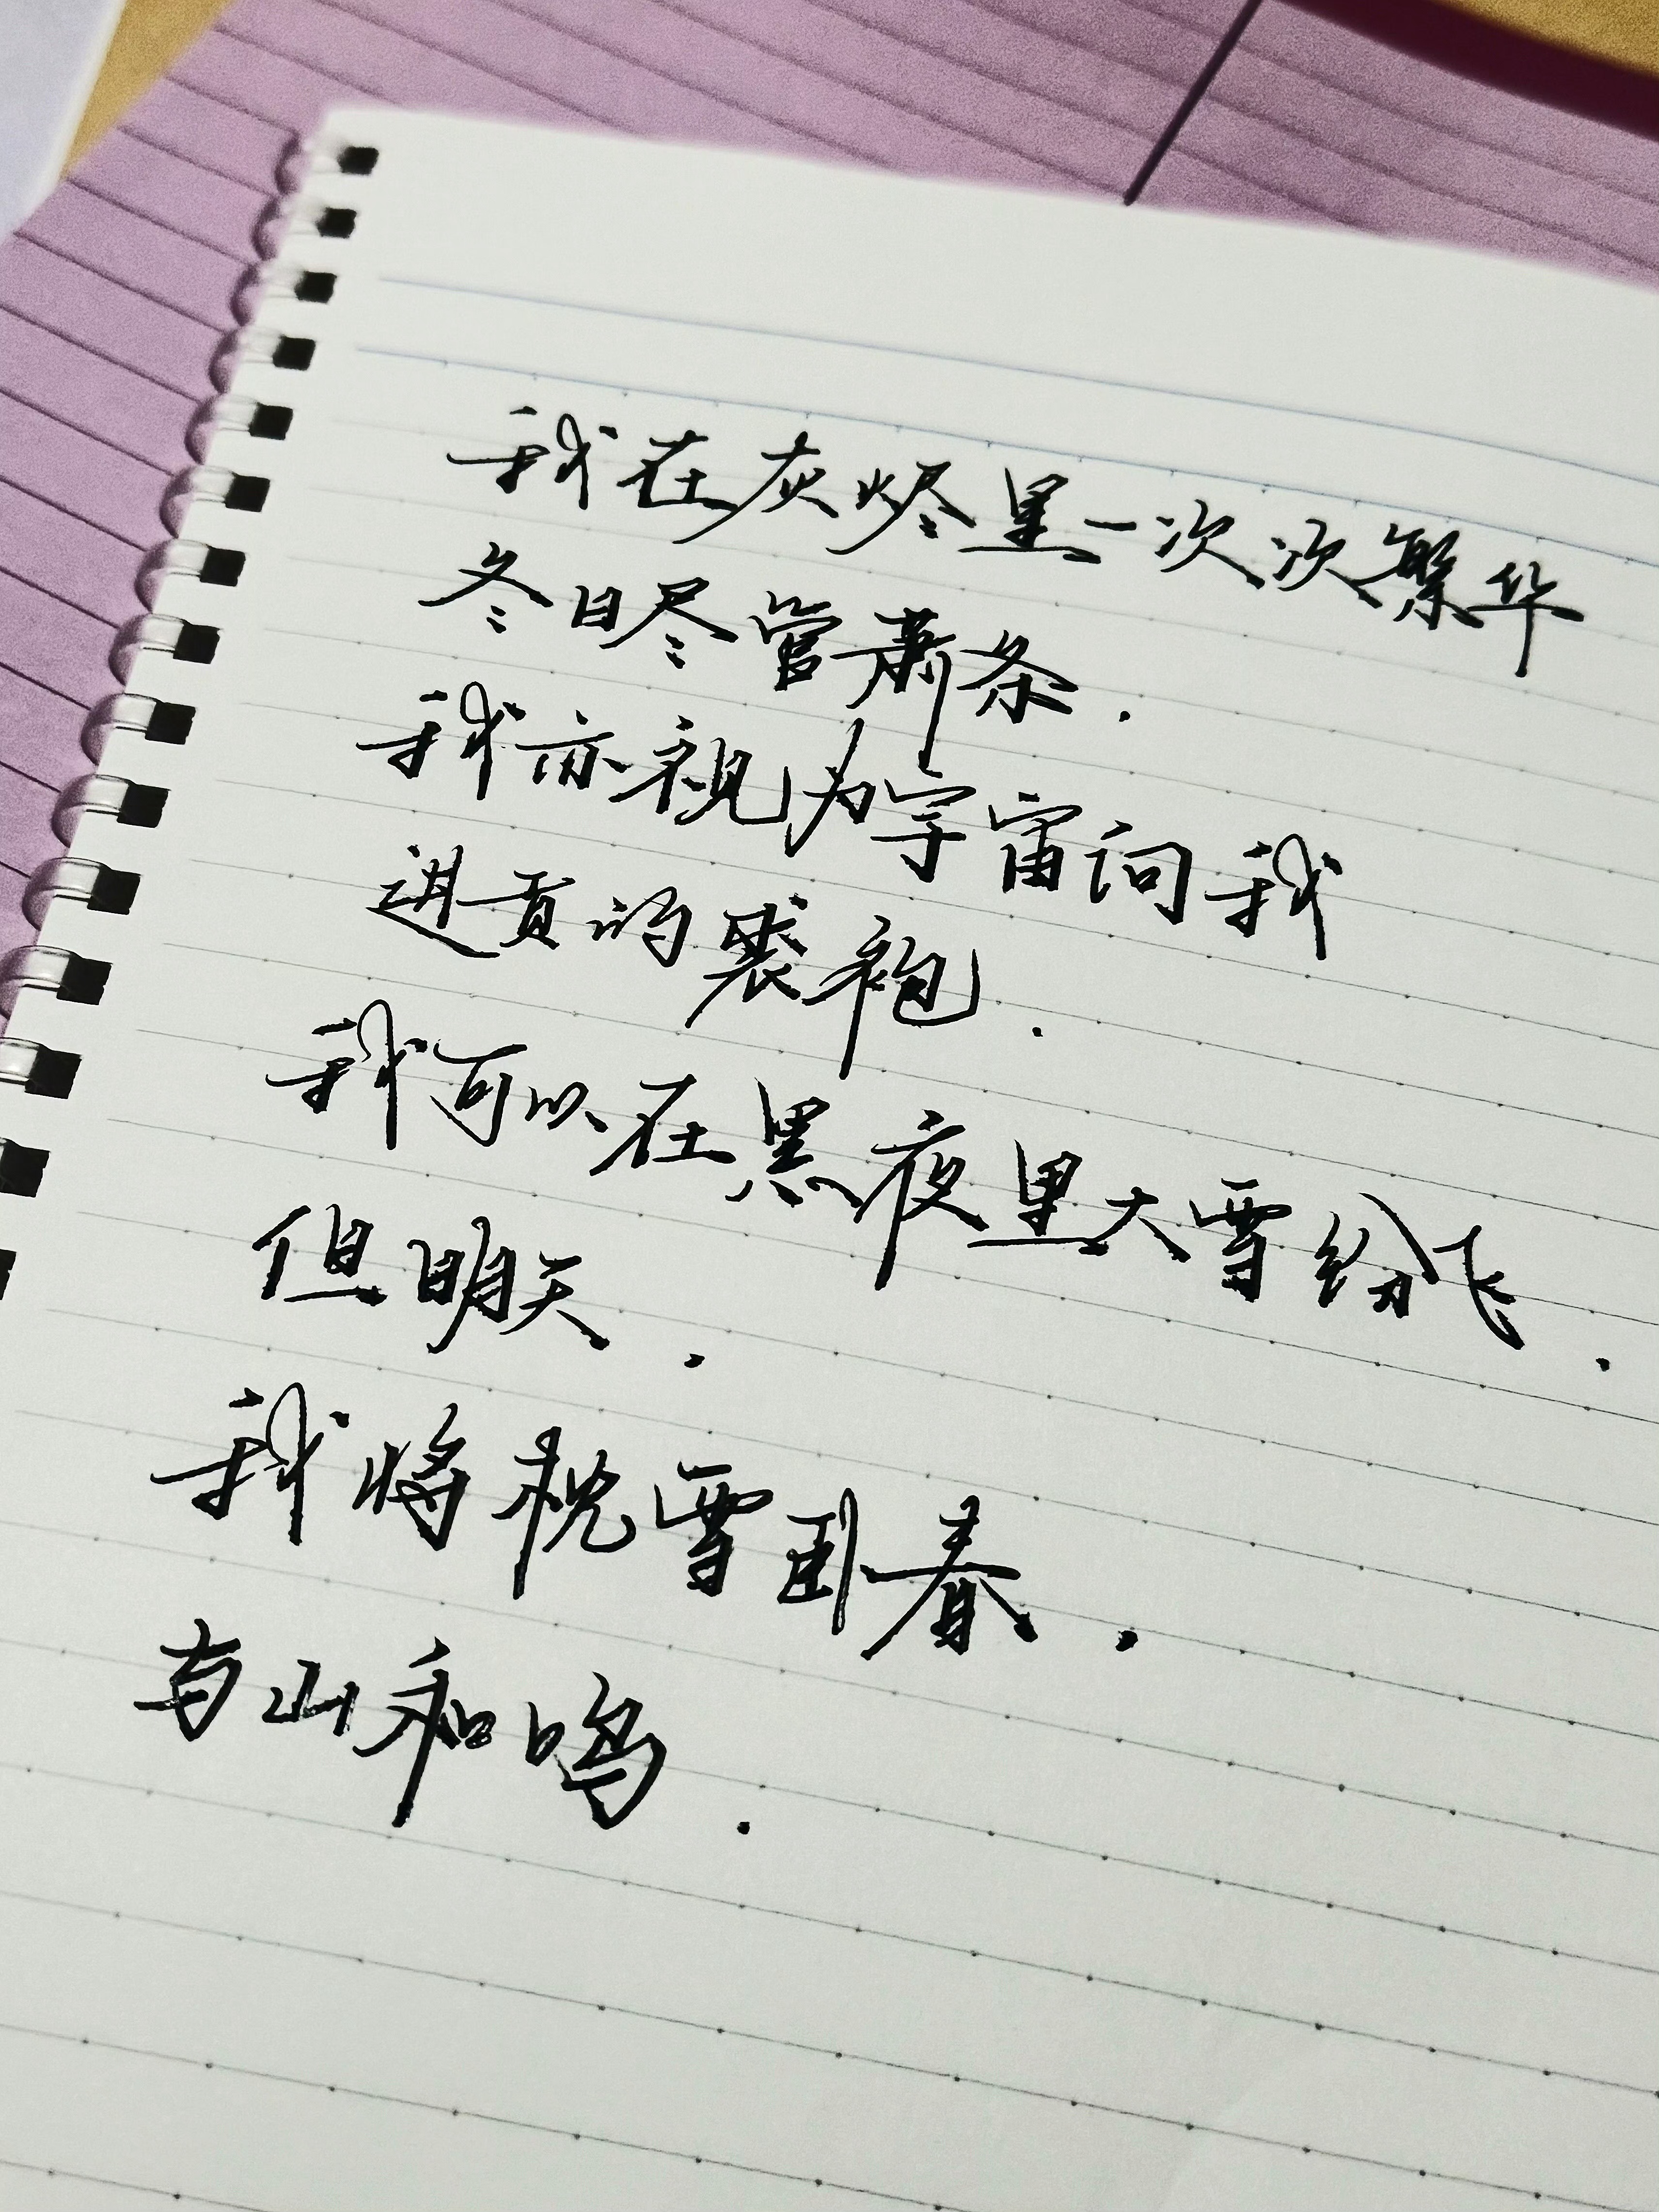 我在灰烬里一次次繁华
冬日尽管萧条.
我亦视为宇宙向我
进贡的裘袍.
我可以在黑夜里大雪纷飞.
但明天.
我将枕雪卧春.
与山和鸣.